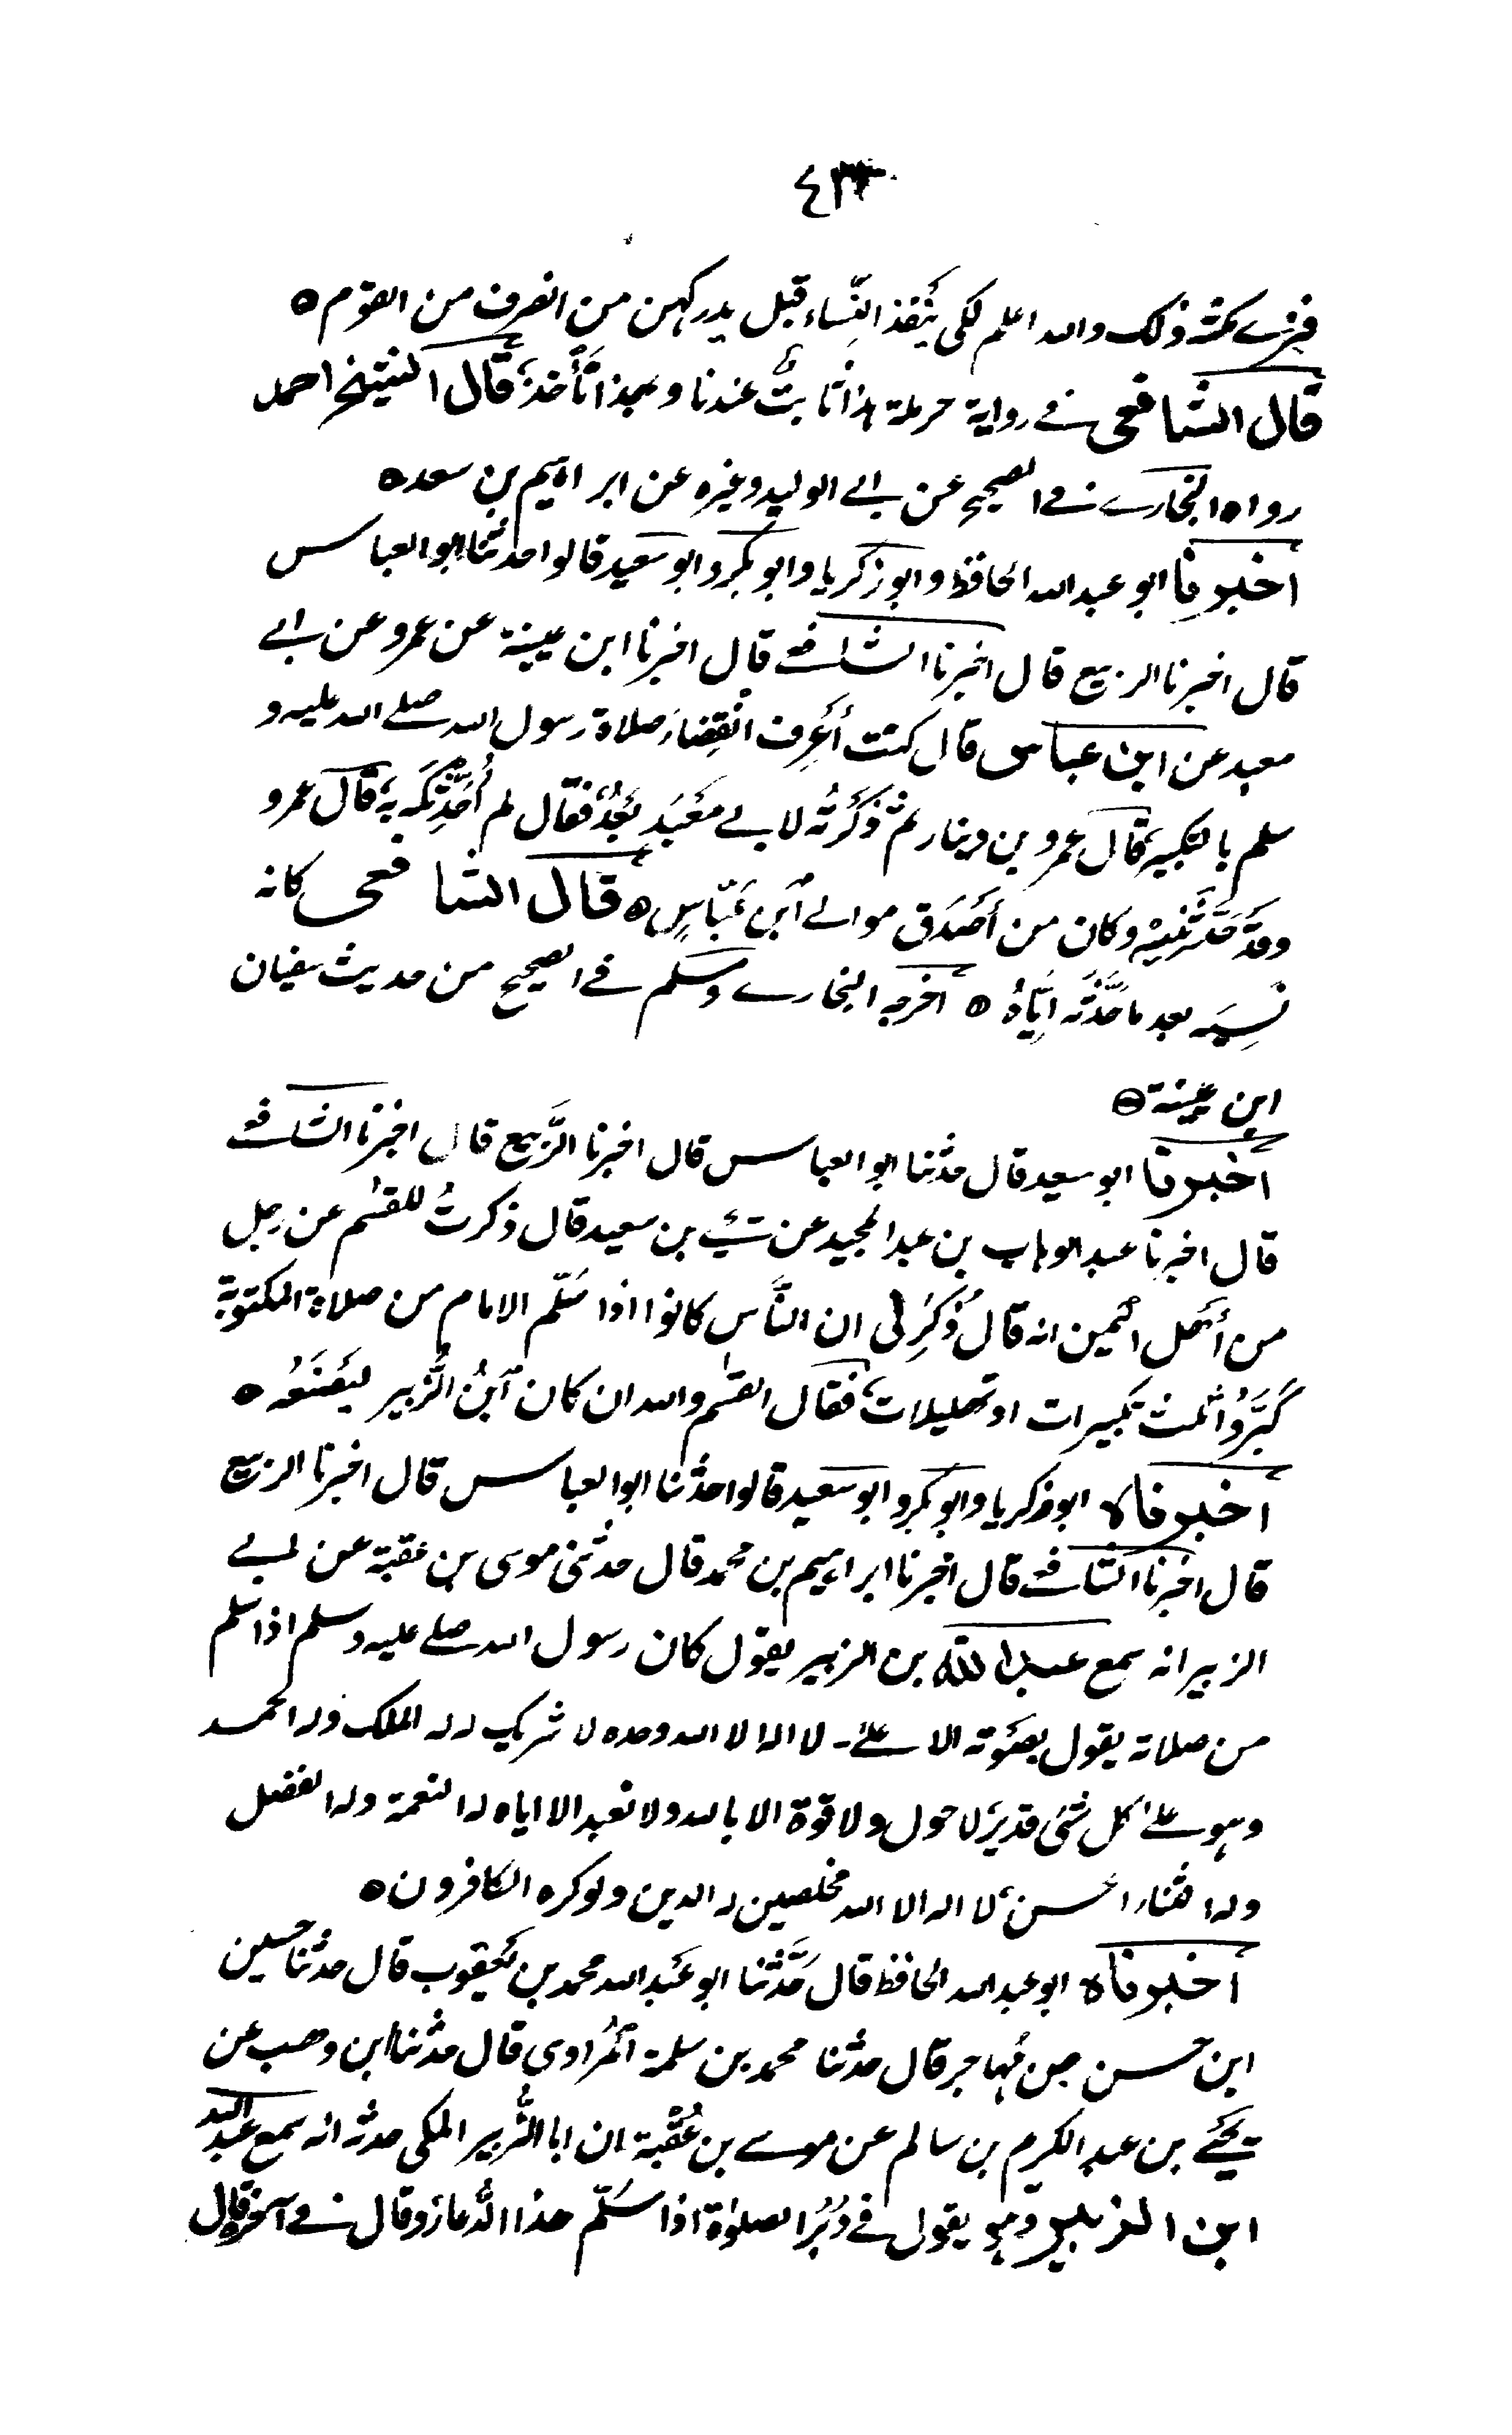 ٤٣٣
فنرى مكثه ذلك والله اعلم لكى يَنْفُذ النِّساء قبل يدركهن من انصرف من القوم ٥
قال الشافعى فى رواية حرملة هذا ثابتٌ عندنا وبهذا نَأخذ، قال الشيخ احمد
رواه البخارى فى الصحيح عن ابى الوليد وغيره عن ابراهيم بن سعد ٥
اخبرنا ابو عبد الله الحافظ وابو زكريا وابو بكر وابو سعيد قالوا حدثنا ابو العباس
قال اخبرنا الربيع قال اخبرنا الشافعى قال اخبرنا ابن عيينة عن عمرو عن ابى
معبد عن ابن عباس قال كنت أَعْرِف انْقِضاء صلاة رسول الله صلى الله عليه و
سلم بالتكبير، قال عمرو بن دينار ثم ذَكَرْتُه لابى مَعْبَد بَعْدُ، فقال لم أُحَدِّثْكَه به، قال عمرو
وقد حَدَّثَنِيْه وكان من أَصْدَق موالى ابن عَبّاسٍ ٥ قال الشافعى كانه
نَسِيَه بعد ما حَدَّثَه اِيَّاهُ ٥ اخرجه البخارى ومسلم فى الصحيح من حديث سفيان
ابن عيينة ٥
اخبرنا ابو سعيد قال حدثنا ابو العباس قال اخبرنا الرَّبيع قال اخبرنا الشافعى
قال اخبرنا عبد الوهاب بن عبد المجيد عن يحيى بن سعيد قال ذكرتُ للقسٰم عن رجل
من أَهْل اليمين انه قال ذُكِرَ لى ان النَّاس كانوا اذا سَلَّم الامام من صلاة المكتوبة
كَبَّرُوا ثلٰث تكبيرات او تهليلات، فقال القسٰم والله ان كان ابنُ الزُّبير ليَصْنَعُه ٥
اخبرناه ابو زكريا وابو بكر وابو سعيد قالوا حدثنا ابو العباس قال اخبرنا الربيع
قال اخبرنا الشافعى قال اخبرنا ابراهيم بن محمد قال حدثنى موسى بن عقبة عن ابى
الزبير انه سمع عبد الله بن الزبير يقول كان رسول الله صلى عليه وسلم اذا سلم
من صلاته يقول بصَوْته الاعلىٰ - لا اله الا الله وحده لا شريك له له الملك وله الحمد
وهو علىٰ كل شئ قدير، لا حول ولا قوة الا بالله ولا نعبد الا اياه له النعمة وله الفضل
وله الثناء الحسن، لا اله الا الله مخلصين له الدين ولو كره الكافرون ٥
اخبرناه ابو عبد الله الحافظ قال حَدَّثنا ابو عَبْد الله محمد بن يَعْقوب قال حدثنا حسين
ابن حسن بن مُهاجر قال حدثنا محمد بن سلمة المُرَادى قال حدثنا ابن وهب عن
يَحْيٰى بن عبد الكريم بن سالم عن موسى بن عُقْبة ان ابا الزُّبير المكى حدثه انه سمع عبد الله
ابن الزبير وهو يقول فى دُبُر الصلوٰة اذا سَلَّم هذا الدُّعاء وقال فى آخره قال